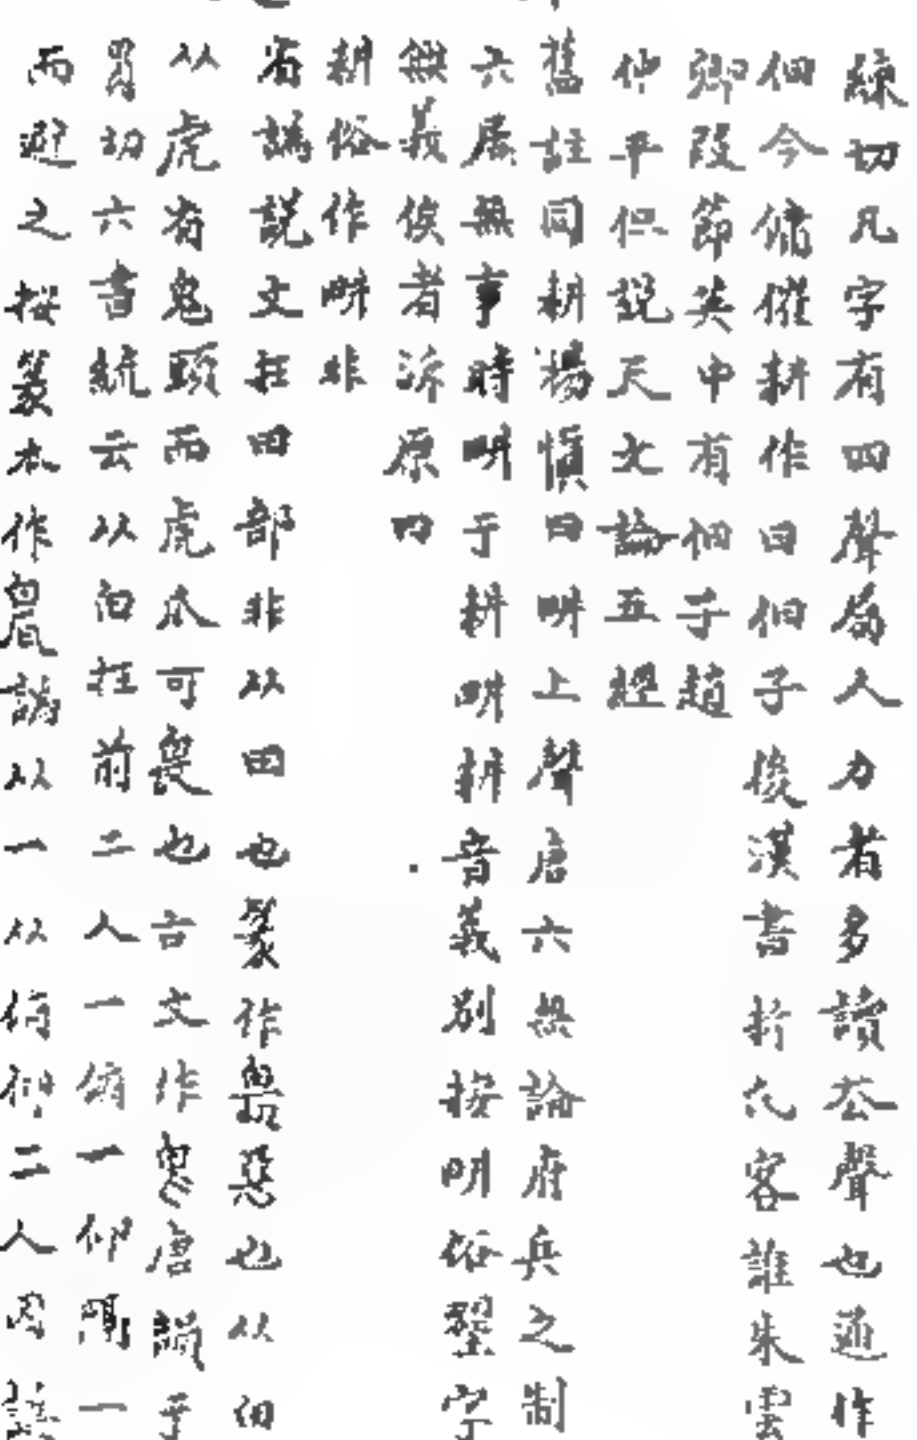 練切凡字有四聲為人力者多讀去聲也通作
佃今傭僱耕作曰佃子後漢書折凡客誰朱雲
卿段節英中有佃子趙
仲平但說天文論五經
舊註同耕楊慎曰畊上聲唐六無論府兵之制
六居無事時畊于耕畊耕音義別按畊俗墾字
無義俟者泝原曰
耕俗作畊非
省譌說文在田部非从田也篆作㽕惡也从甶
从虎省鬼頭而虎爪可畏也古文作㽕唐韻于
胃切六書統云从甶在前二人一俯一仰隔一
而避之按篆本作譌以一从俯仰二人因